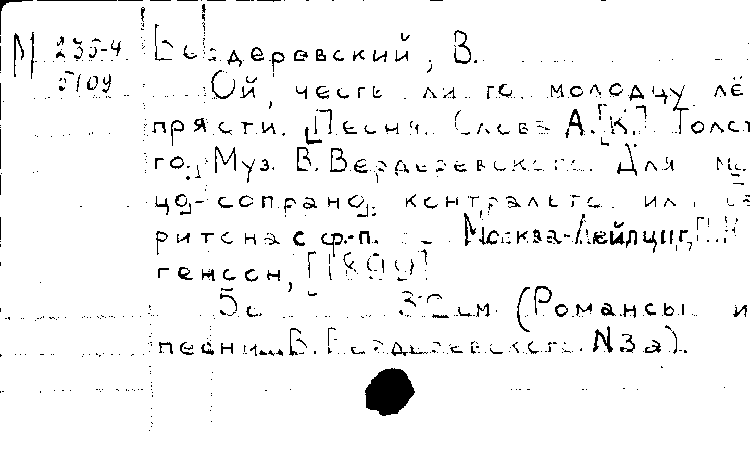 М 235-4
5109
Вердеревский, В.
Ой, честь ли то молодцу лё
прясти. [Песня. Слова А.[К.] Толст
го.] Муз. В. Вердеревского. Для ме
цо-сопрано, контральто или ба
ритона с ф.-п. - Москва-Лейпциг,
генсон, [1899]
5с 32см. (Романсы и
песни В. Вердеревского. N3а).